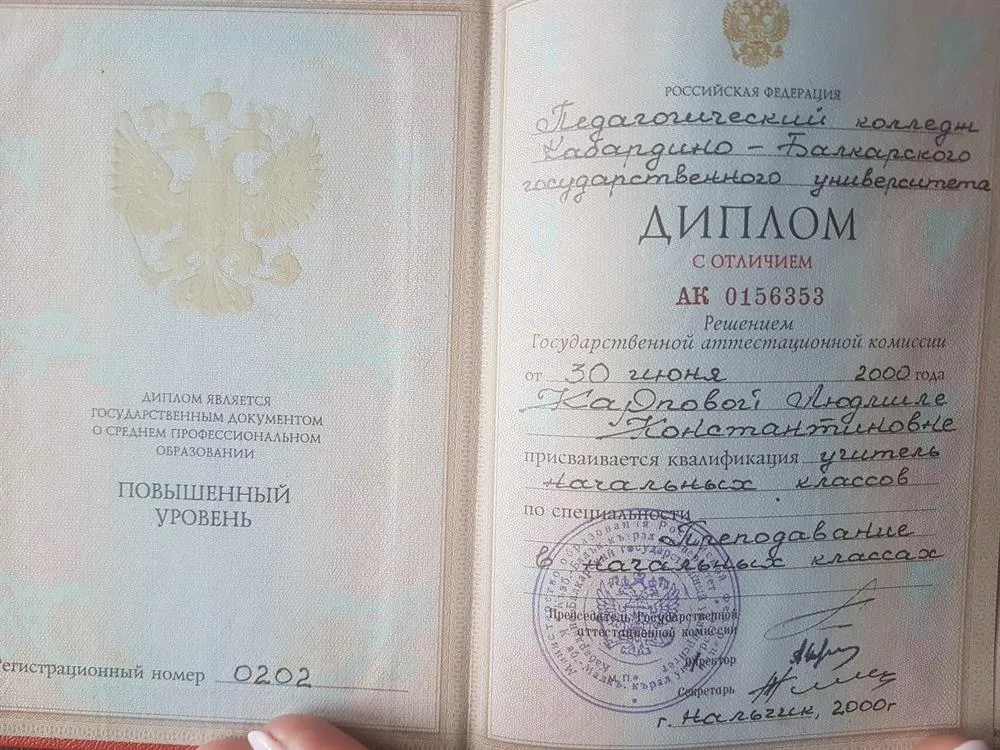 ДИПЛОМ ЯВЛЯЕТСЯ
ГОСУДАРСТВЕННЫМ ДОКУМЕНТОМ
О СРЕДНЕМ ПРОФЕССИОНАЛЬНОМ
ОБРАЗОВАНИИ
ПОВЫШЕННЫЙ
УРОВЕНЬ
Регистрационный номер 0202
РОССИЙСКАЯ ФЕДЕРАЦИЯ
Педагогический колледж
Кабардино - Балкарского
государственного университета
ДИПЛОМ
С ОТЛИЧИЕМ
АК 0156353
Решением
Государственной аттестационной комиссии
от 30 июня 2000 года
Карповой Людмиле
Константиновне
присваивается квалификация учитель
начальных классов
по специальности
Преподавание
в начальных классах
Председатель Государственной
аттестационной комиссии
Директор
М.П.
Секретарь
г. Нальчик, 2000г